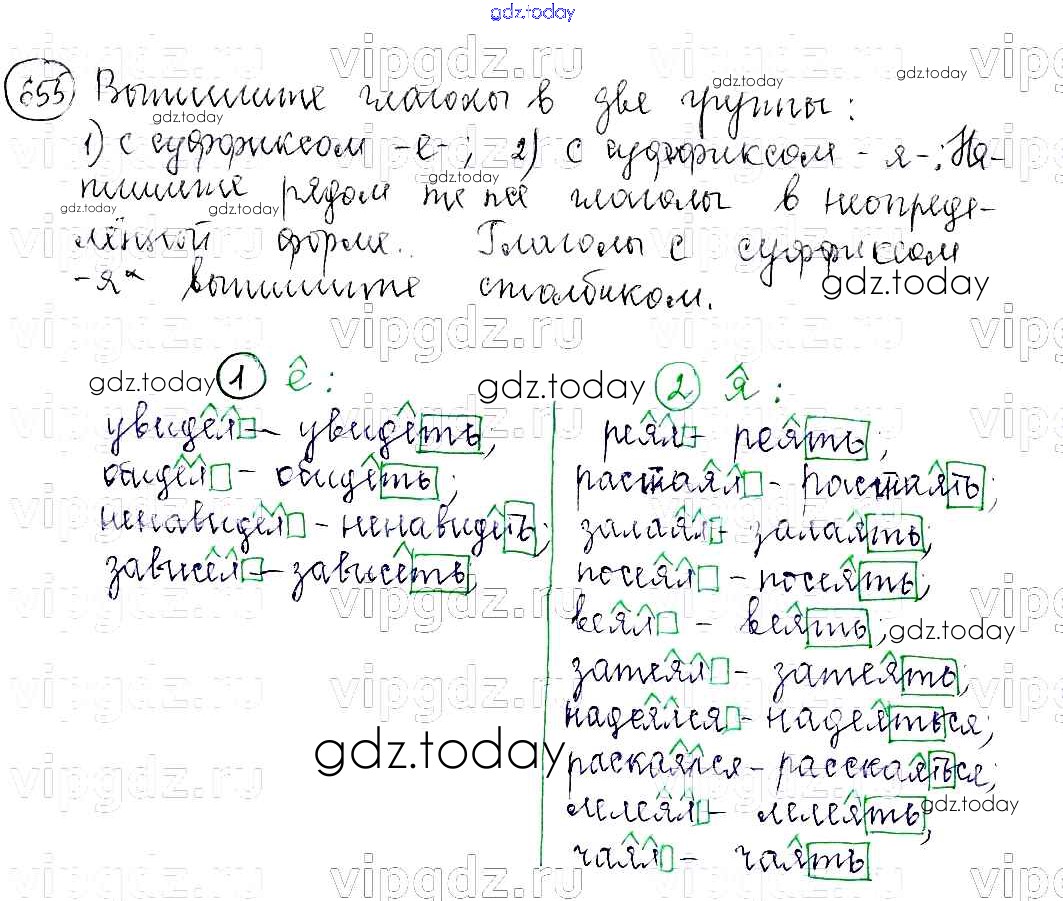 gdz.today
655 Выпишите глаголы в две группы:
1) с суффиксом -е-; 2) с суффиксом -я-; На-
пишите рядом те же глаголы в неопреде-
лённой форме. Глаголы с суффиксом
-я- выпишите столбиком.
1 е:
увидел - увидеть;
обидел - обидеть;
ненавидел - ненавидеть;
зависел - зависеть;
2 я:
реял - реять;
растаял - растаять;
залаял - залаять;
посеял - посеять;
веял - веять;
затеял - затеять;
надеялся - надеяться;
раскаялся - расскаяться;
лелеял - лелеять;
чаял - чаять
gdz.today
vipgdz.ru